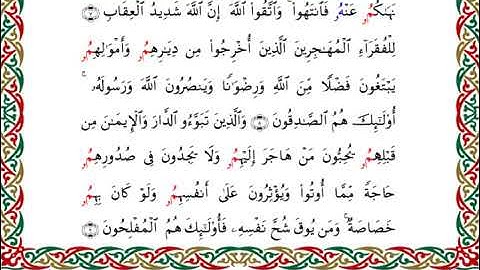 نَهَىٰكُمُۥ عَنْهُ فَٱنتَهُوا۟ وَٱتَّقُوا۟ ٱللَّهَ إِنَّ ٱللَّهَ شَدِيدُ ٱلْعِقَابِ
لِلْفُقَرَآءِ ٱلْمُهَٰجِرِينَ ٱلَّذِينَ أُخْرِجُوا۟ مِن دِيَٰرِهِمُۥ وَأَمْوَٰلِهِمُۥ
يَبْتَغُونَ فَضْلًا مِّنَ ٱللَّهِ وَرِضْوَٰنًا وَيَنصُرُونَ ٱللَّهَ وَرَسُولَهُۥٓ ۚ
أُو۟لَٰٓئِكَ هُمُ ٱلصَّٰدِقُونَ ۝ وَٱلَّذِينَ تَبَوَّءُو ٱلدَّارَ وَٱلْإِيمَٰنَ مِن
قَبْلِهِمُۥ يُحِبُّونَ مَنْ هَاجَرَ إِلَيْهِمُۥ وَلَا يَجِدُونَ فِى صُدُورِهِمُۥ
حَاجَةً مِّمَّآ أُوتُوا۟ وَيُؤْثِرُونَ عَلَىٰٓ أَنفُسِهِمُۥ وَلَوْ كَانَ بِهِمُۥ
خَصَاصَةٌ ۚ وَمَن يُوقَ شُحَّ نَفْسِهِۦ فَأُو۟لَٰٓئِكَ هُمُ ٱلْمُفْلِحُونَ ۝